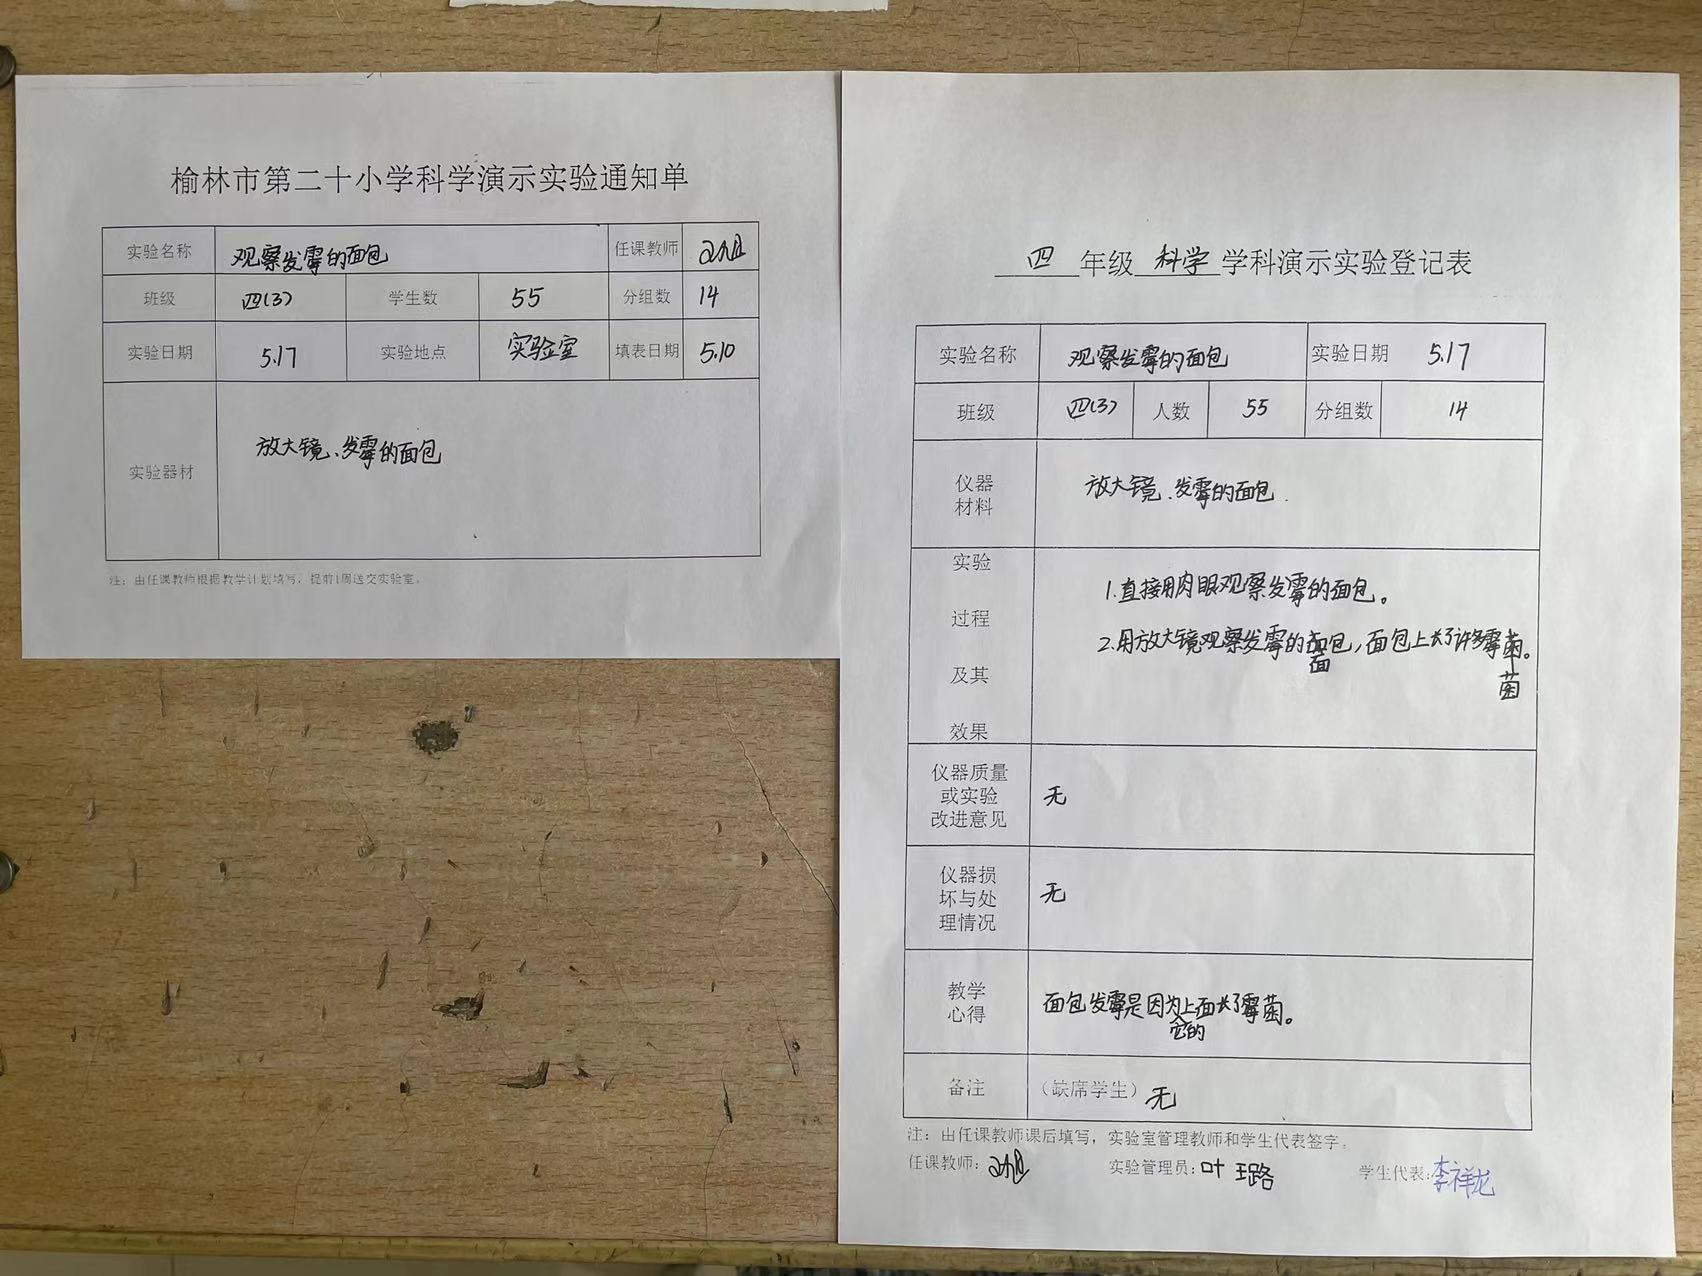 榆林市第二十小学科学演示实验通知单
实验名称 观察发霉的面包 任课教师
班级 四(3) 学生数 55 分组数 14
实验日期 5.17 实验地点 实验室 填表日期 5.10
实验器材 放大镜、发霉的面包
注：由任课教师根据教学计划填写，提前1周送交实验室。
四 年级 科学 学科演示实验登记表
实验名称 观察发霉的面包 实验日期 5.17
班级 四(3) 人数 55 分组数 14
仪器
材料
放大镜、发霉的面包.
实验
过程
及其
效果
1.直接用肉眼观察发霉的面包。
2.用放大镜观察发霉的面包，面包上长了许多霉菌。
面
菌
仪器质量
或实验
改进意见
无
仪器损
坏与处
理情况
无
教学
心得
面包发霉是因为上面长了霉菌。
它的
备注 （缺席学生）无
注：由任课教师课后填写，实验室管理教师和学生代表签字。
任课教师： 实验管理员：叶 璐 学生代表：李祥龙